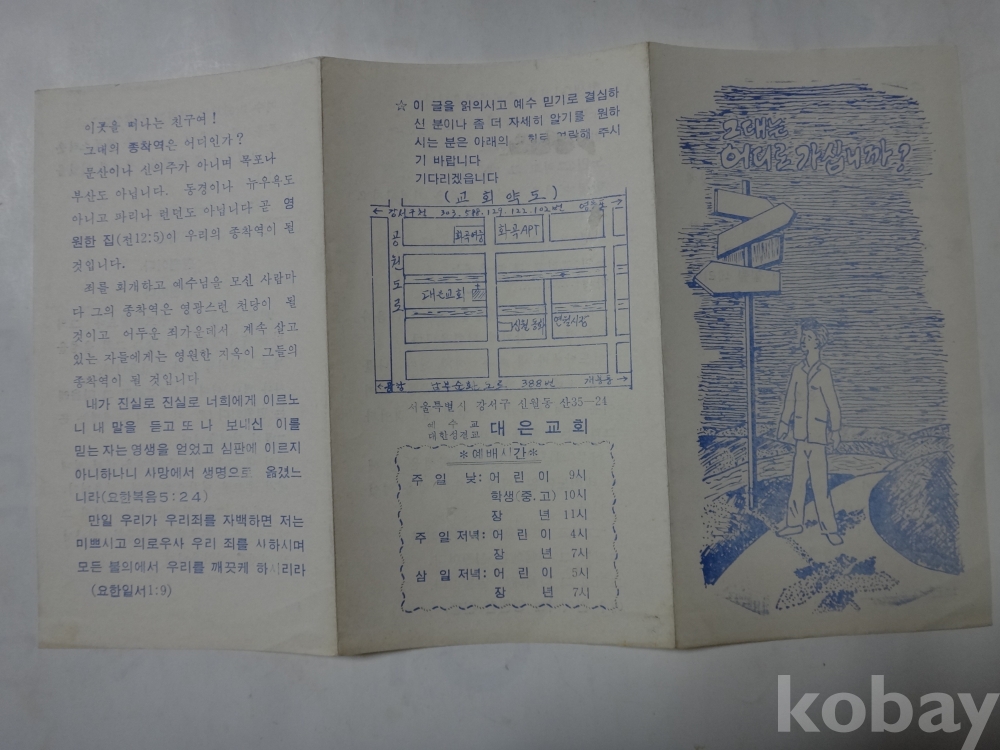 이곳을 떠나는 친구여!
그대의 종착역은 어디인가?
문산이나 신의주가 아니며 목포나
부산도 아닙니다. 동경이나 뉴우욕도
아니고 파리나 런던도 아닙니다 곧 영
원한 집(전12:5)이 우리의 종착역이 될
것입니다.
죄를 회개하고 예수님을 모신 사람마
다 그의 종착역은 영광스런 천당이 될
것이고 어두운 죄가운데서 계속 살고
있는 자들에게는 영원한 지옥이 그들의
종착역이 될 것입니다
내가 진실로 진실로 너희에게 이르노
니 내 말을 듣고 또 나 보내신 이를
믿는 자는 영생을 얻었고 심판에 이르지
아니하나니 사망에서 생명으로 옮겼느
니라(요한복음5:24)
만일 우리가 우리죄를 자백하면 저는
미쁘시고 의로우사 우리 죄를 사하시며
모든 불의에서 우리를 깨끗케 하시리라
(요한일서1:9)
☆ 이 글을 읽의시고 예수 믿기로 결심하
신 분이나 좀 더 자세히 알기를 원하
시는 분은 아래의 연락해 주시
기 바랍니다
기다리겠읍니다
(교회약도)
강서구청 303. 588. 129. 122. 102번
공원도로
화곡APT
대은교회
남부순환도로 388번
서울특별시 강서구 신월동 산35—24
예수교
대한성결교 대은교회
*예배시간*
주일 낮: 어린이 9시
학생(중.고) 10시
장년 11시
주일저녁: 어린이 4시
장년 7시
삼일저녁: 어린이 5시
장년 7시
그대는
어디로 가십니까?
kobay